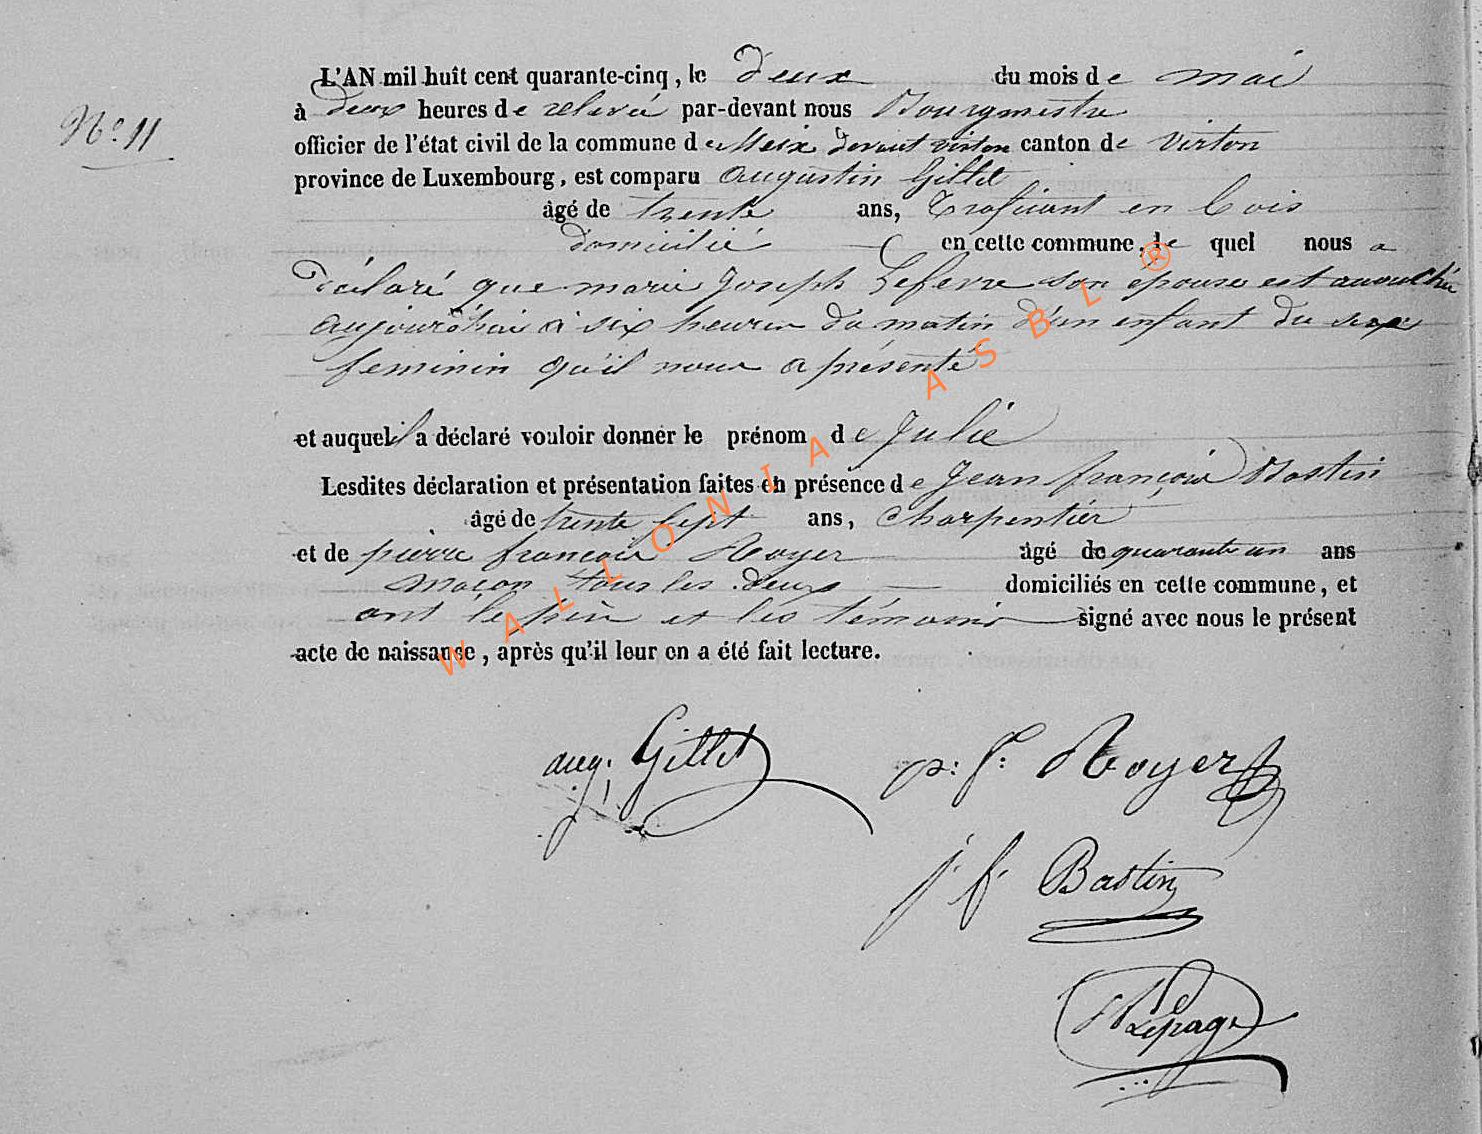 L'AN mil huit cent quarante-cinq, le deux du mois de mai
N.° 11
à deux heures de relevée par-devant nous Bourgmestre
officier de l'état civil de la commune de Meix devant virton canton de virton
province de Luxembourg, est comparu augustin Gillet
âgé de trente ans, trafiquant en bois
domicilié en cette commune, le quel nous a
déclaré que marie Joseph Lefevre son épouse est accouchée
aujourd'hui à six heures du matin d'un enfant du sexe
feminin qu'il nous a présenté
et auquel il a déclaré vouloir donner le prénom de Julie
Lesdites déclaration et présentation faites en présence de Jean françois Bastin
âgé de trente sept ans, charpentier
et de pierre françois Royer âgé de quarante un ans
maçon tous les deux domiciliés en cette commune, et
ont le père et les témoins signé avec nous le présent
acte de naissance, après qu'il leur en a été fait lecture.
aug. Gillet
p: f: Royer
j. f. Bastin
Lepage
WALLONIA ASBL ®